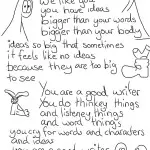 We like you
you have ideas
bigger than your words
bigger than your body
ideas so big that sometimes
it feels like no ideas
because they are too big
to see
You are a good writer
You do thinkey things
and listeney things
and work things
you cry for words and characters
and ideas
you are a good writer